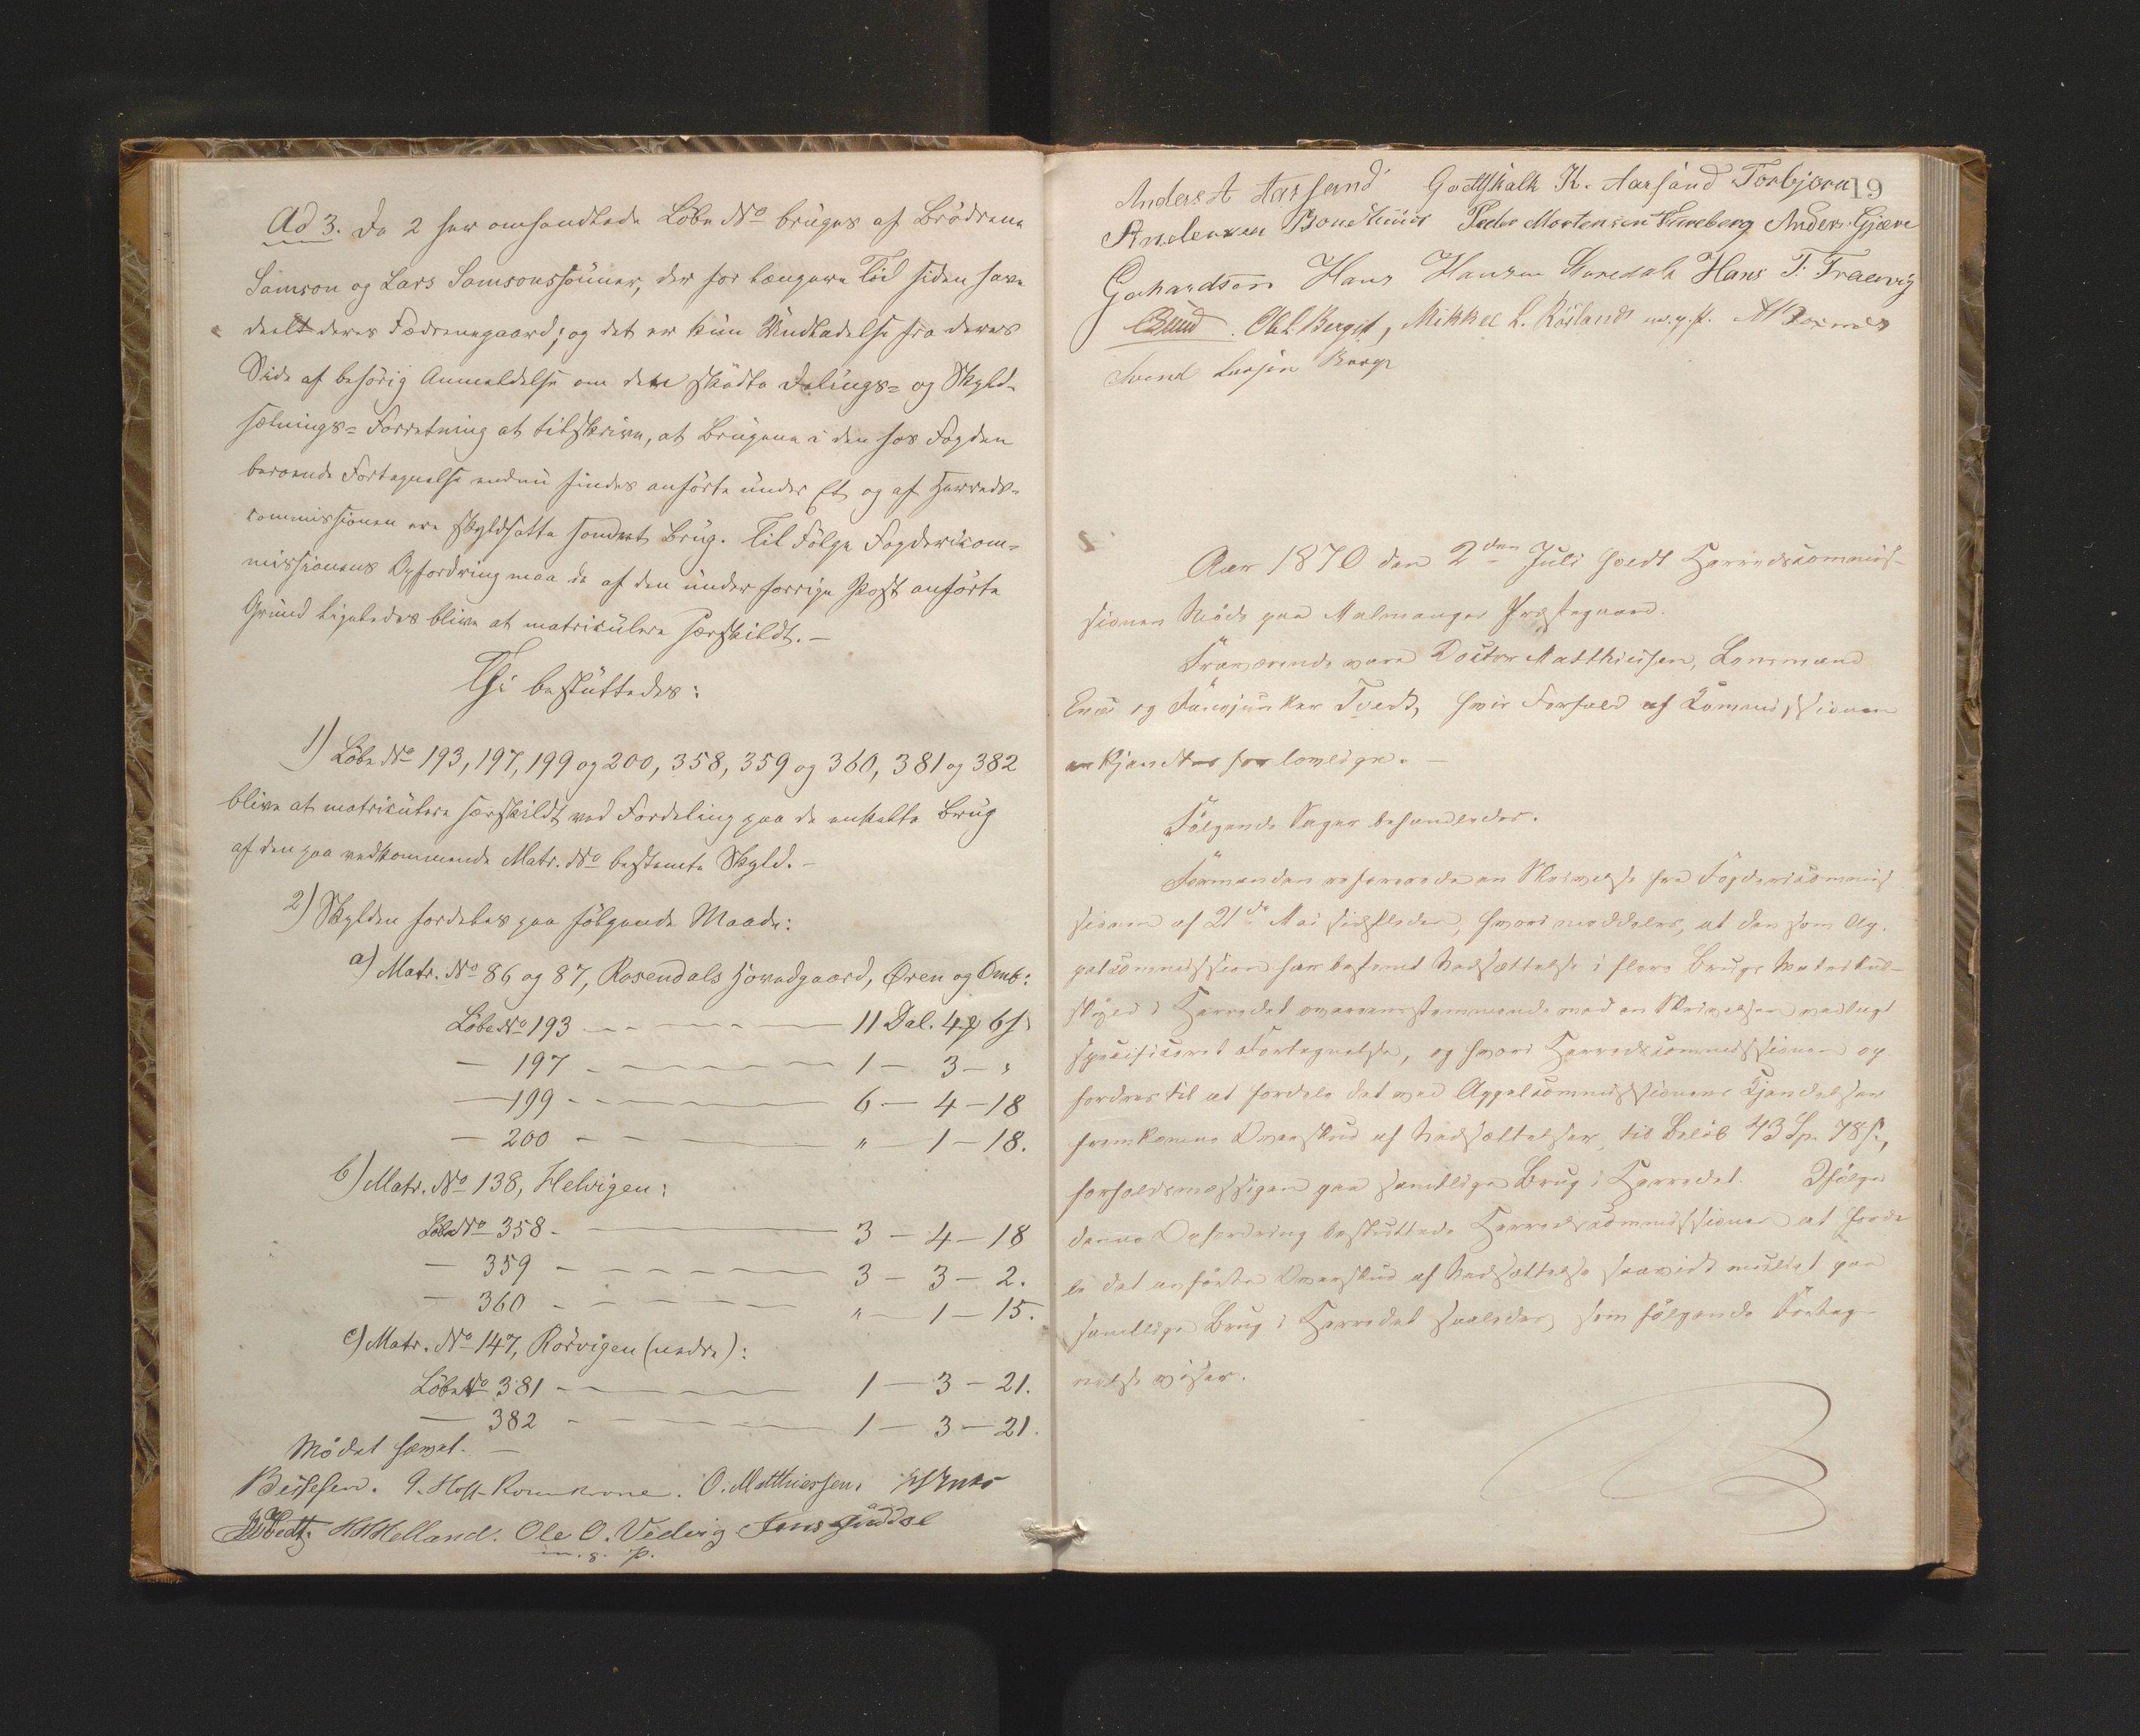 Ad 3. De 2 her omhandlede Løbe No bruges af Brødrene
Samson og Lars Samsonssønner, der for længere Tid siden have
deelt deres Fædrenegaard; og det er kun Undladelse fra deres
Side af behörig Anmeldelse om den skedte Delings- og Skyld-
sætnings-Forretning at tilskrive, at Brugene i den hos Fogden
beroende Fortegnelse endnu findes anførte under Et og af Herreds-
commissionen ere skyldsatte som et Brug. Til Følge Fogdericom-
missionens Opfordring maa de af den under forrige Post anførte
Grund ligeledes blive at matriculere særskildt. –
Thi besluttedes:
1) Løbe No 193, 197, 199 og 200, 358, 359 og 360, 381 og 382
blive at matriculere særskildt ved Fordeling paa de enkelte Brug
af den paa vedkommende Matr. No bestemte Skyld. –
2) Skylden fordeles paa følgende Maade:
a) Matr. No 86 og 87, Rosendals Hovedgaard, Øren og Omb:
Løbe No 193 – – – – 11 Dal. 4 6 s
— 197 – – – – 1 — 3 — "
— 199 – – – – 6 — 4 — 18
— 200 – – – – " — 1 — 18.
b) Matr. No 138, Helvigen:
Løbe No 358 – – – – 3 — 4 — 18
— 359 – – – – 3 — 3 — 2.
— 360 – – – – " — 1 — 15.
c) Matr. No 147, Rörvigen (nedre):
Løbe No 381 – – – – 1 — 3 — 21.
— 382 – – – – 1 — 3 — 21.
Mødet hævet. —
G. Hoff-Rosenkrone. O. Matthiessen.
H Helland. Ole O. Vedvig Jens
m. p.
19
Anders A Aarsand Godtskalk K. Aarsand Torbjørn
Andersen Bondhuus Peder Mortensen Anders Gjære
Gerhardson Hans Hansen Hans T. Træevig
Ole L. Berget, Mikkel L. Røsland m. p. p.
Svend Larsen
Aar 1870 den 2den Juli holdt Herredscommis-
sionen Møde paa Malmanger Præstegaard.
Fraværende vare Doctor Matthiessen, Lensmand
og Fanejunker Tvedt, hvis Forfald af Commissionen
ankjendtes for lovlige. —
Følgende Sager behandledes.
Formanden refererede en Skrivelse fra Fogdericommis
sionen af 21de Mai sidstleden, hvori meddeles, at den som Ap-
pelcommission har bestemt Nedsættelse i flere Brugs Matrikul-
skyld i Herredet overensstemmende med en Skrivelsen vedlagt
specificeret Fortegnelse, og hvori Herredscommissionen op
fordres til at fordele det ved Appelcommissionens Kjendelser
fremkomne Overskud af Nedsættelser, til Beløb 43 Sp. 78 s.,
forholdsmæssigen paa samtlige Brug i Herredet. Ifølge
denne Opfordring besluttede Herredscommissionen at forde
le det anførte Overskud af Nedsættelse saavidt muligt paa
samtlige Brug i Herredet saaledes, som følgende Forteg-
nelse viser.